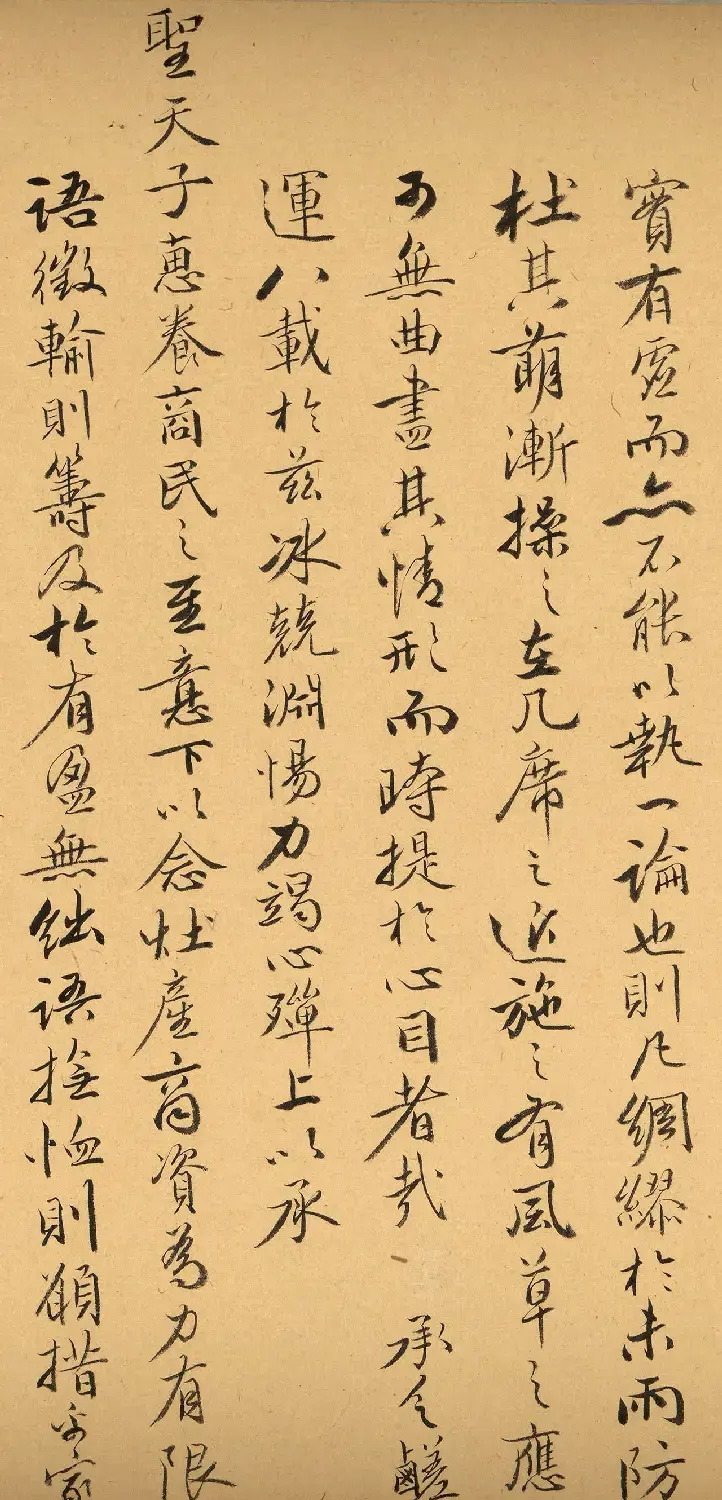 實有虛而亦不能以執一論也則凡綢繆於未雨防
杜其萌漸操之在几席之近施之有風草之應
可無曲盡其情形而時提於心目者哉 承乏鹺
運八載於茲冰兢淵惕力竭心殫上以承
聖天子惠養商民之至意下以念灶產商資為力有限
語徵輸則籌及於有盈無絀語撫恤則願措乎家